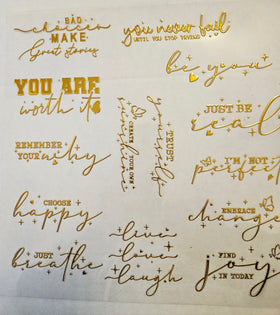 BAD
choices
MAKE
Great stories
you never fail
UNTIL YOU STOP TRYING
be you
YOU ARE
worth it
JUST BE
real
TRUST
yourself
CREATE
YOUR OWN
sunshine
REMEMBER
YOUR why
I'M NOT
perfect
CHOOSE
happy
EMBRACE
change
live
love
laugh
JUST
breathe
FIND
joy
IN TODAY